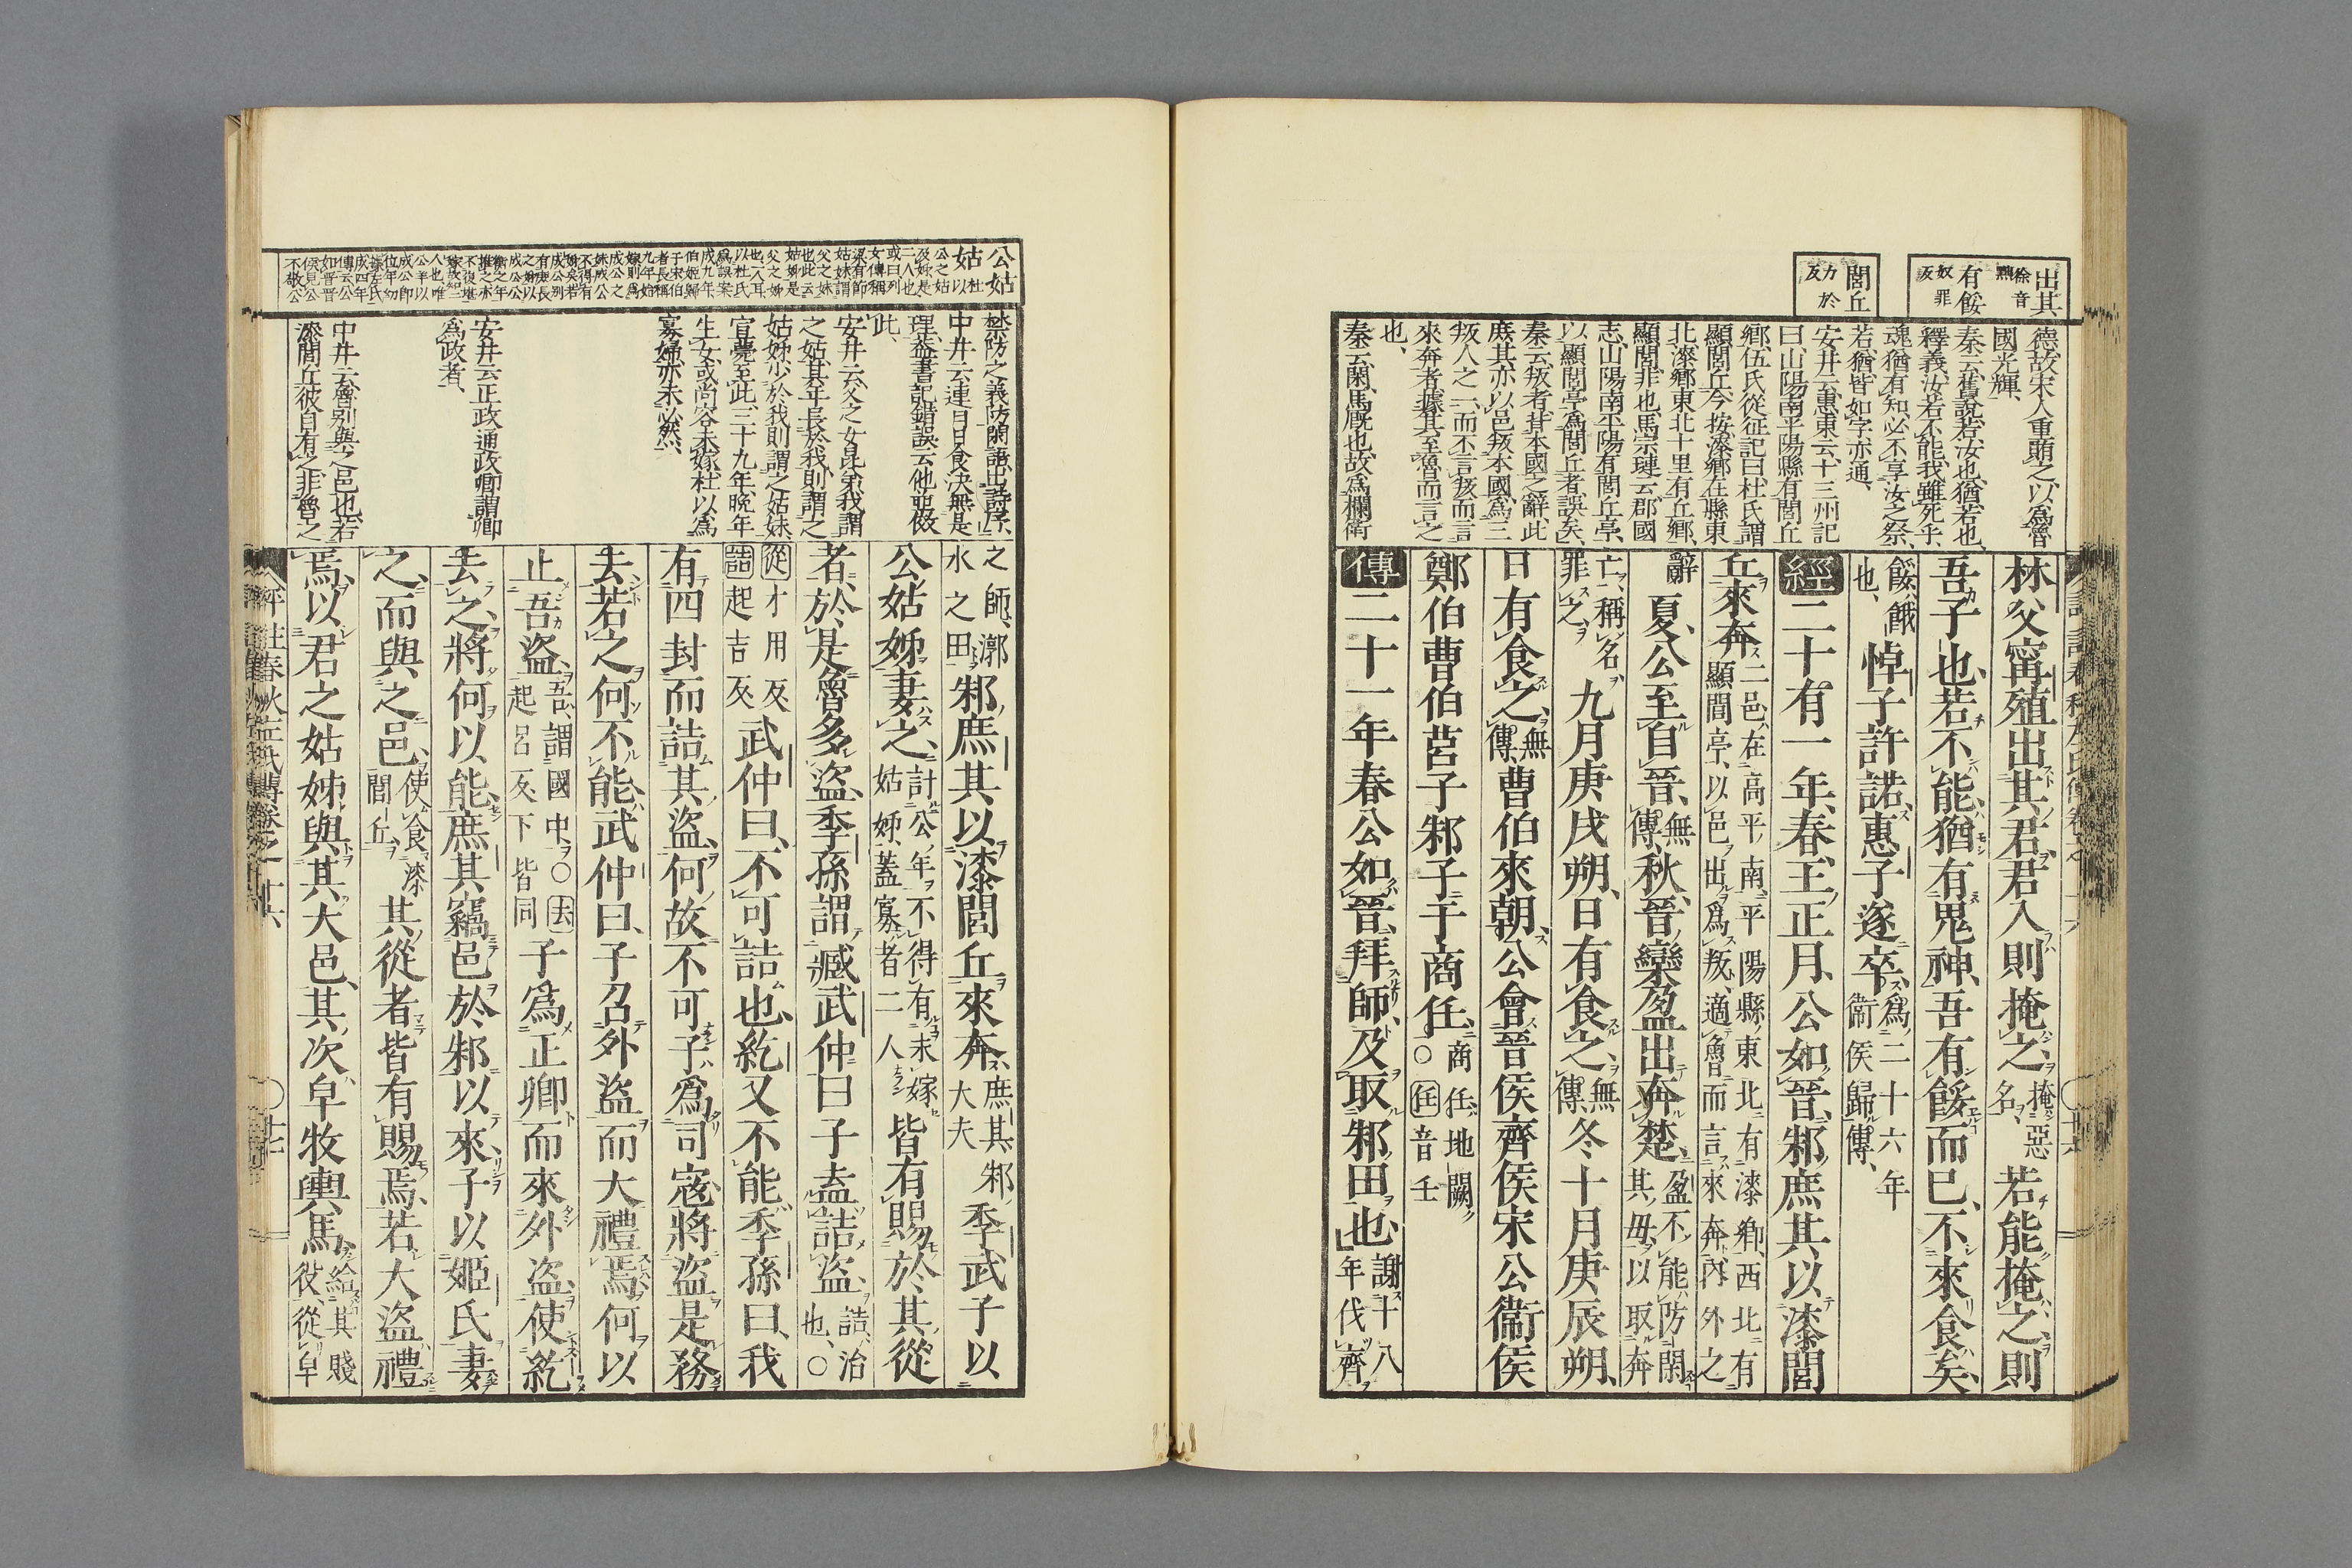 出其
徐音
有餒
奴罪
反
閭丘
力於
反
德故宋人重賄之以爲魯
國光輝、
秦云舊説若汝也、猶若也、
釋義、汝若不能、我雖死乎、
魂猶有知、必不享汝之祭、
若猶皆如字亦通、
安井云、惠東云、十三州記
曰山陽南平陽縣有閭丘
鄉、伍氏從征記曰、杜氏謂
顯閭丘、今按漆鄉在縣東
北、漆鄉東北十里有丘鄉、
顯閭非也、馬宗璉云郡國
志、山陽南平陽有閭丘亭、
以顯閭亭爲閭丘者誤矣、
秦云叛者、其本國之辭、此
庶其亦以邑叛本國、爲三
叛人之一、而不言叛而言
來奔者、據其至魯而言之
也、
秦云閑、馬廐也、故爲欄衛
林父甯殖出其君、君入則掩之、掩惡名、若能掩之、則
吾子也、若不能、猶有鬼神、吾有餒而已、不來食矣、
餒、餓也、悼子許諾、惠子遂卒、爲二十六年衛侯歸傳、
經二十有一年、春、王正月、公如晉、邾庶其以漆閭
丘來奔、二邑、在高平南平陽縣東北有漆鄉、西北有顯閭亭、以邑出爲叛、適魯而言來奔、內外之
辭夏、公至自晉、無傳、秋、晉欒盈出奔楚、盈不能防閑其母、以取奔
亡、稱名、罪之、九月庚戌朔、日有食之、無傳、冬十月庚辰朔、
日有食之、無傳、曹伯來朝、公會晉侯齊侯宋公衛侯
鄭伯曹伯莒子邾子于商任、商任、地闕〇任音壬
傳二十一年春公如晉、拜師、及取邾田也、謝十八年伐齊
之師、漷水之田、邾庶其以漆閭丘來奔、庶其、邾大夫季武子以
公姑姊妻之、計公年不得有未嫁姑姊、蓋寡者二人皆有賜於其從
者、於是魯多盜、季孫謂臧武仲曰、子盍詰盜、詰、治也、〇
從才用反詰起吉反武仲曰、不可詰也、紇又不能、季孫曰、我
有四封、而詰其盜、何故不可、子爲司寇、將盜是務
去、若之何不能、武仲曰、子召外盜而大禮焉、何以
止吾盜、吾、謂國中、〇去起呂反下皆同子爲正卿而來外盜、使紇
去之、將何以能、庶其竊邑於邾以來、子以姬氏妻
之、而與之邑、使食漆閭丘、其從者皆有賜焉、若大盜禮
焉、以君之姑姊、與其大邑、其次皁牧輿馬、給其賤役、從皁
公姑
姑杜以
禁防之義、防閑語出詩序、
中井云連月日食、決無是
理、益書記錯誤云、他曲倣
此、
安井云、父之女昆弟、我謂
之姑、其年長於我、則謂之
姑姊、少於我則謂之姑妹、
宣薨至此、三十九年、晩年
生女或尚容未嫁、杜以爲
寡婦亦未必然、
安井云正政通、政卿謂卿
爲政者、
中井云、魯別與之邑也、若
漆閭丘、彼自有之、非魯之
評註春秋左氏傳卷之十六